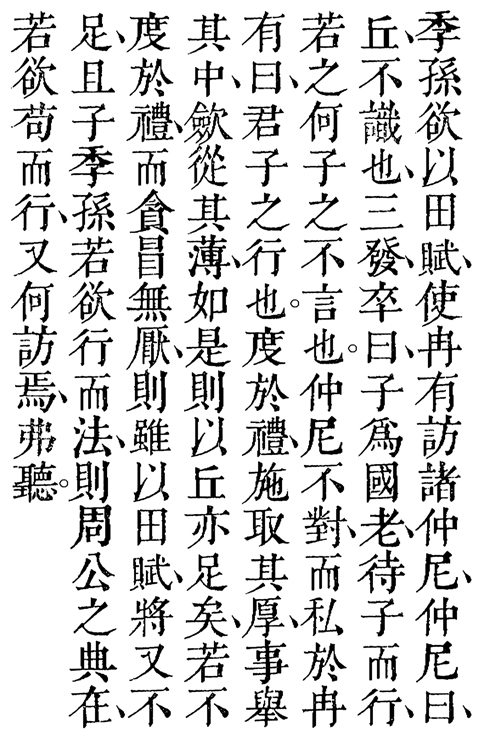 季孫欲以田賦、使冉有訪諸仲尼、仲尼曰、
丘、不識也、三發、卒曰、子爲國老、待子而行、
若之何子之不言也。仲尼不對、而私於冉
有曰、君子之行也。度於禮、施取其厚、事舉
其中、歛從其薄、如是則以丘亦足矣、若不
度於禮、而貪冒無厭、則雖以田賦、將又不
足、且子季孫若欲行而法、則周公之典在、
若欲苟而行、又何訪焉、弗聽。